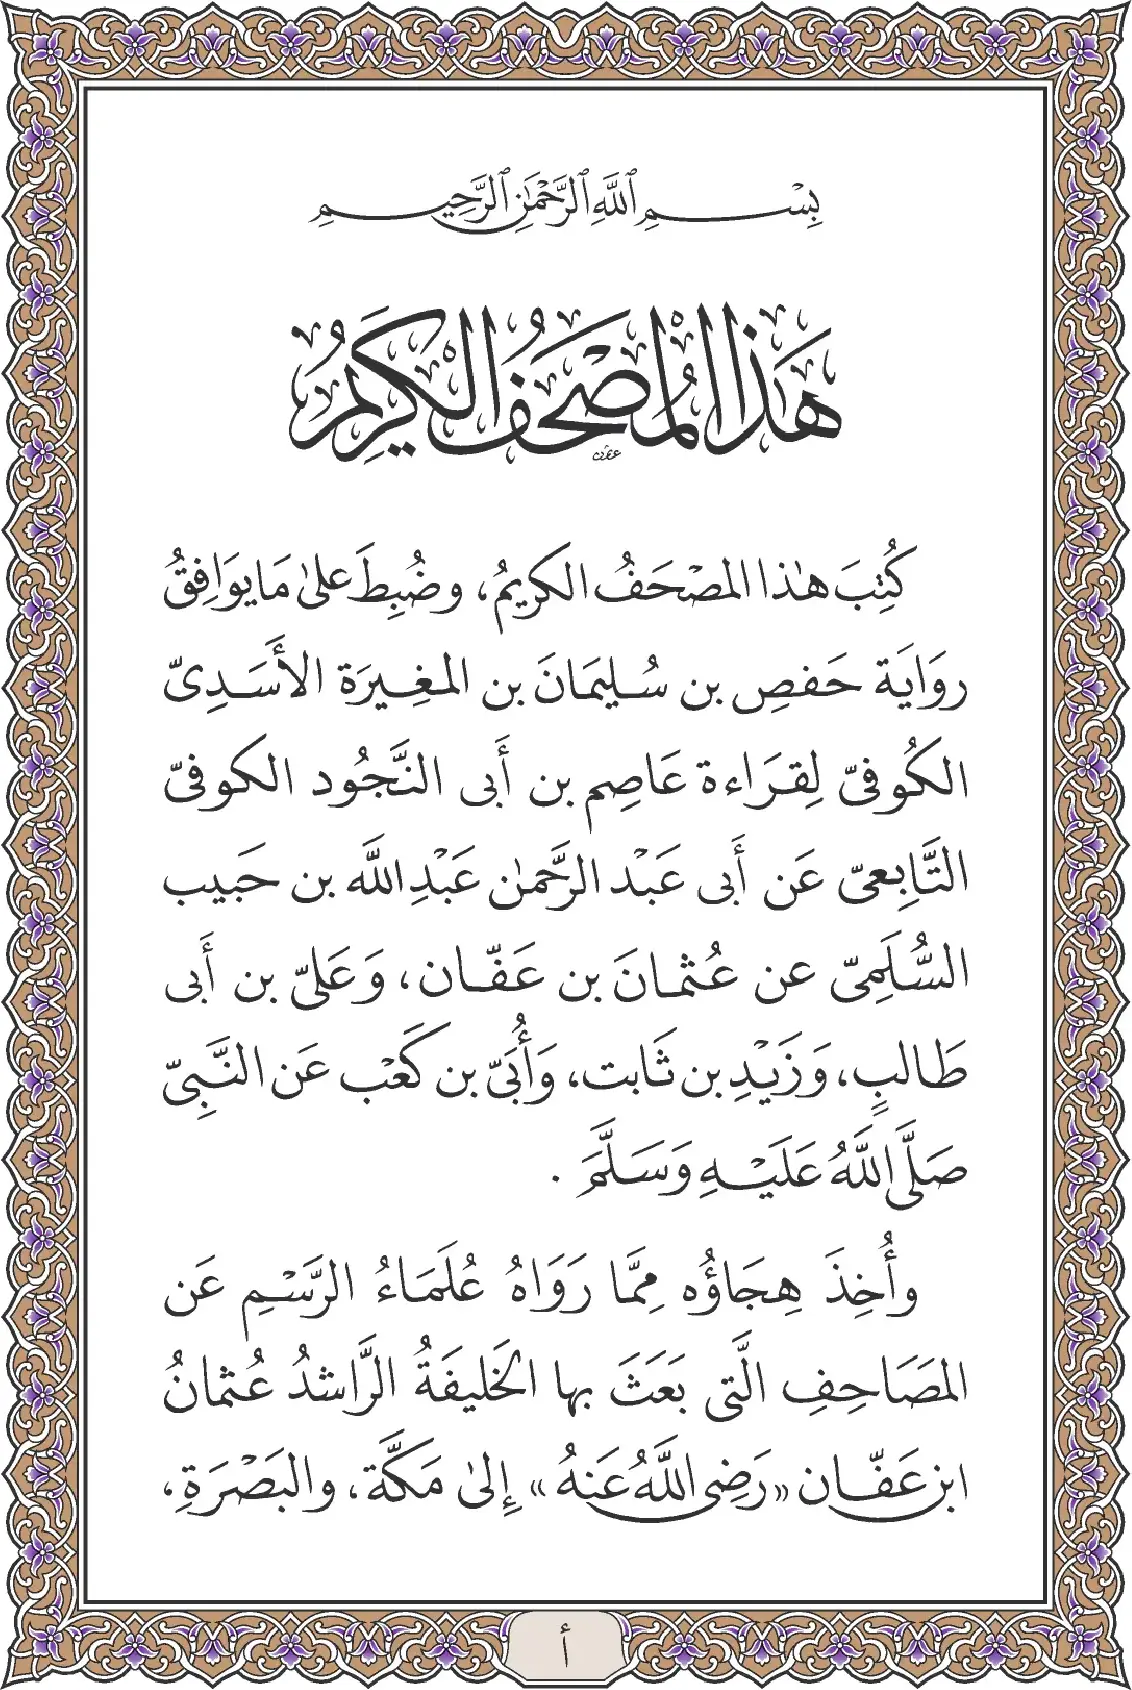 بِسْمِ ٱللَّهِ ٱلرَّحْمَٰنِ ٱلرَّحِيمِ
هَذَا الْمُصْحَفُ الْكَرِيمُ
كُتِبَ هٰذا المصْحَفُ الكريمُ، وضُبِطَ علىٰ مَا يوَافِقُ
روَايَة حَفصِ بن سُليمَانَ بن المغِيرَة الأَسَدِىّ
الكُوفىّ لِقرَاءة عَاصِم بن أَبى النَّجُود الكوفىّ
التَّابِعىّ عَن أَبى عَبْد الرَّحمٰن عَبْدِ اللَّه بن حَبيب
السُّلَمِىّ عن عُثمانَ بن عَفّان، وَعَلىّ بن أَبى
طَالبٍ، وَزَيْدِ بن ثَابت، وَأُبَىّ بن كَعْب عَن النَّبِىّ
صَلَّى اللَّهُ عَلَيْهِ وَسَلَّمَ .
وأُخِذَ هِجَاؤُه مِمَّا رَوَاهُ عُلَمَاءُ الرَّسْمِ عَن
المصَاحِفِ الَّتى بَعَثَ بها الخَليفَةُ الرَّاشدُ عُثمانُ
ابن عَفّان «رَضِى اللَّهُ عَنهُ» إِلىٰ مَكَّة، والبَصْرَةِ،
أ